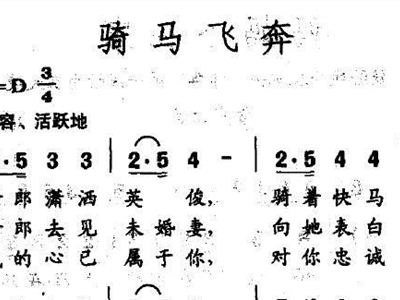 骑马飞奔
=D 3/4
容、活跃地
2·5 3 3 2·5 4 - 2·5 4 4
郎潇洒英俊,骑着快马
郎去见未婚妻,向她表白
的心已属于你,对你忠诚